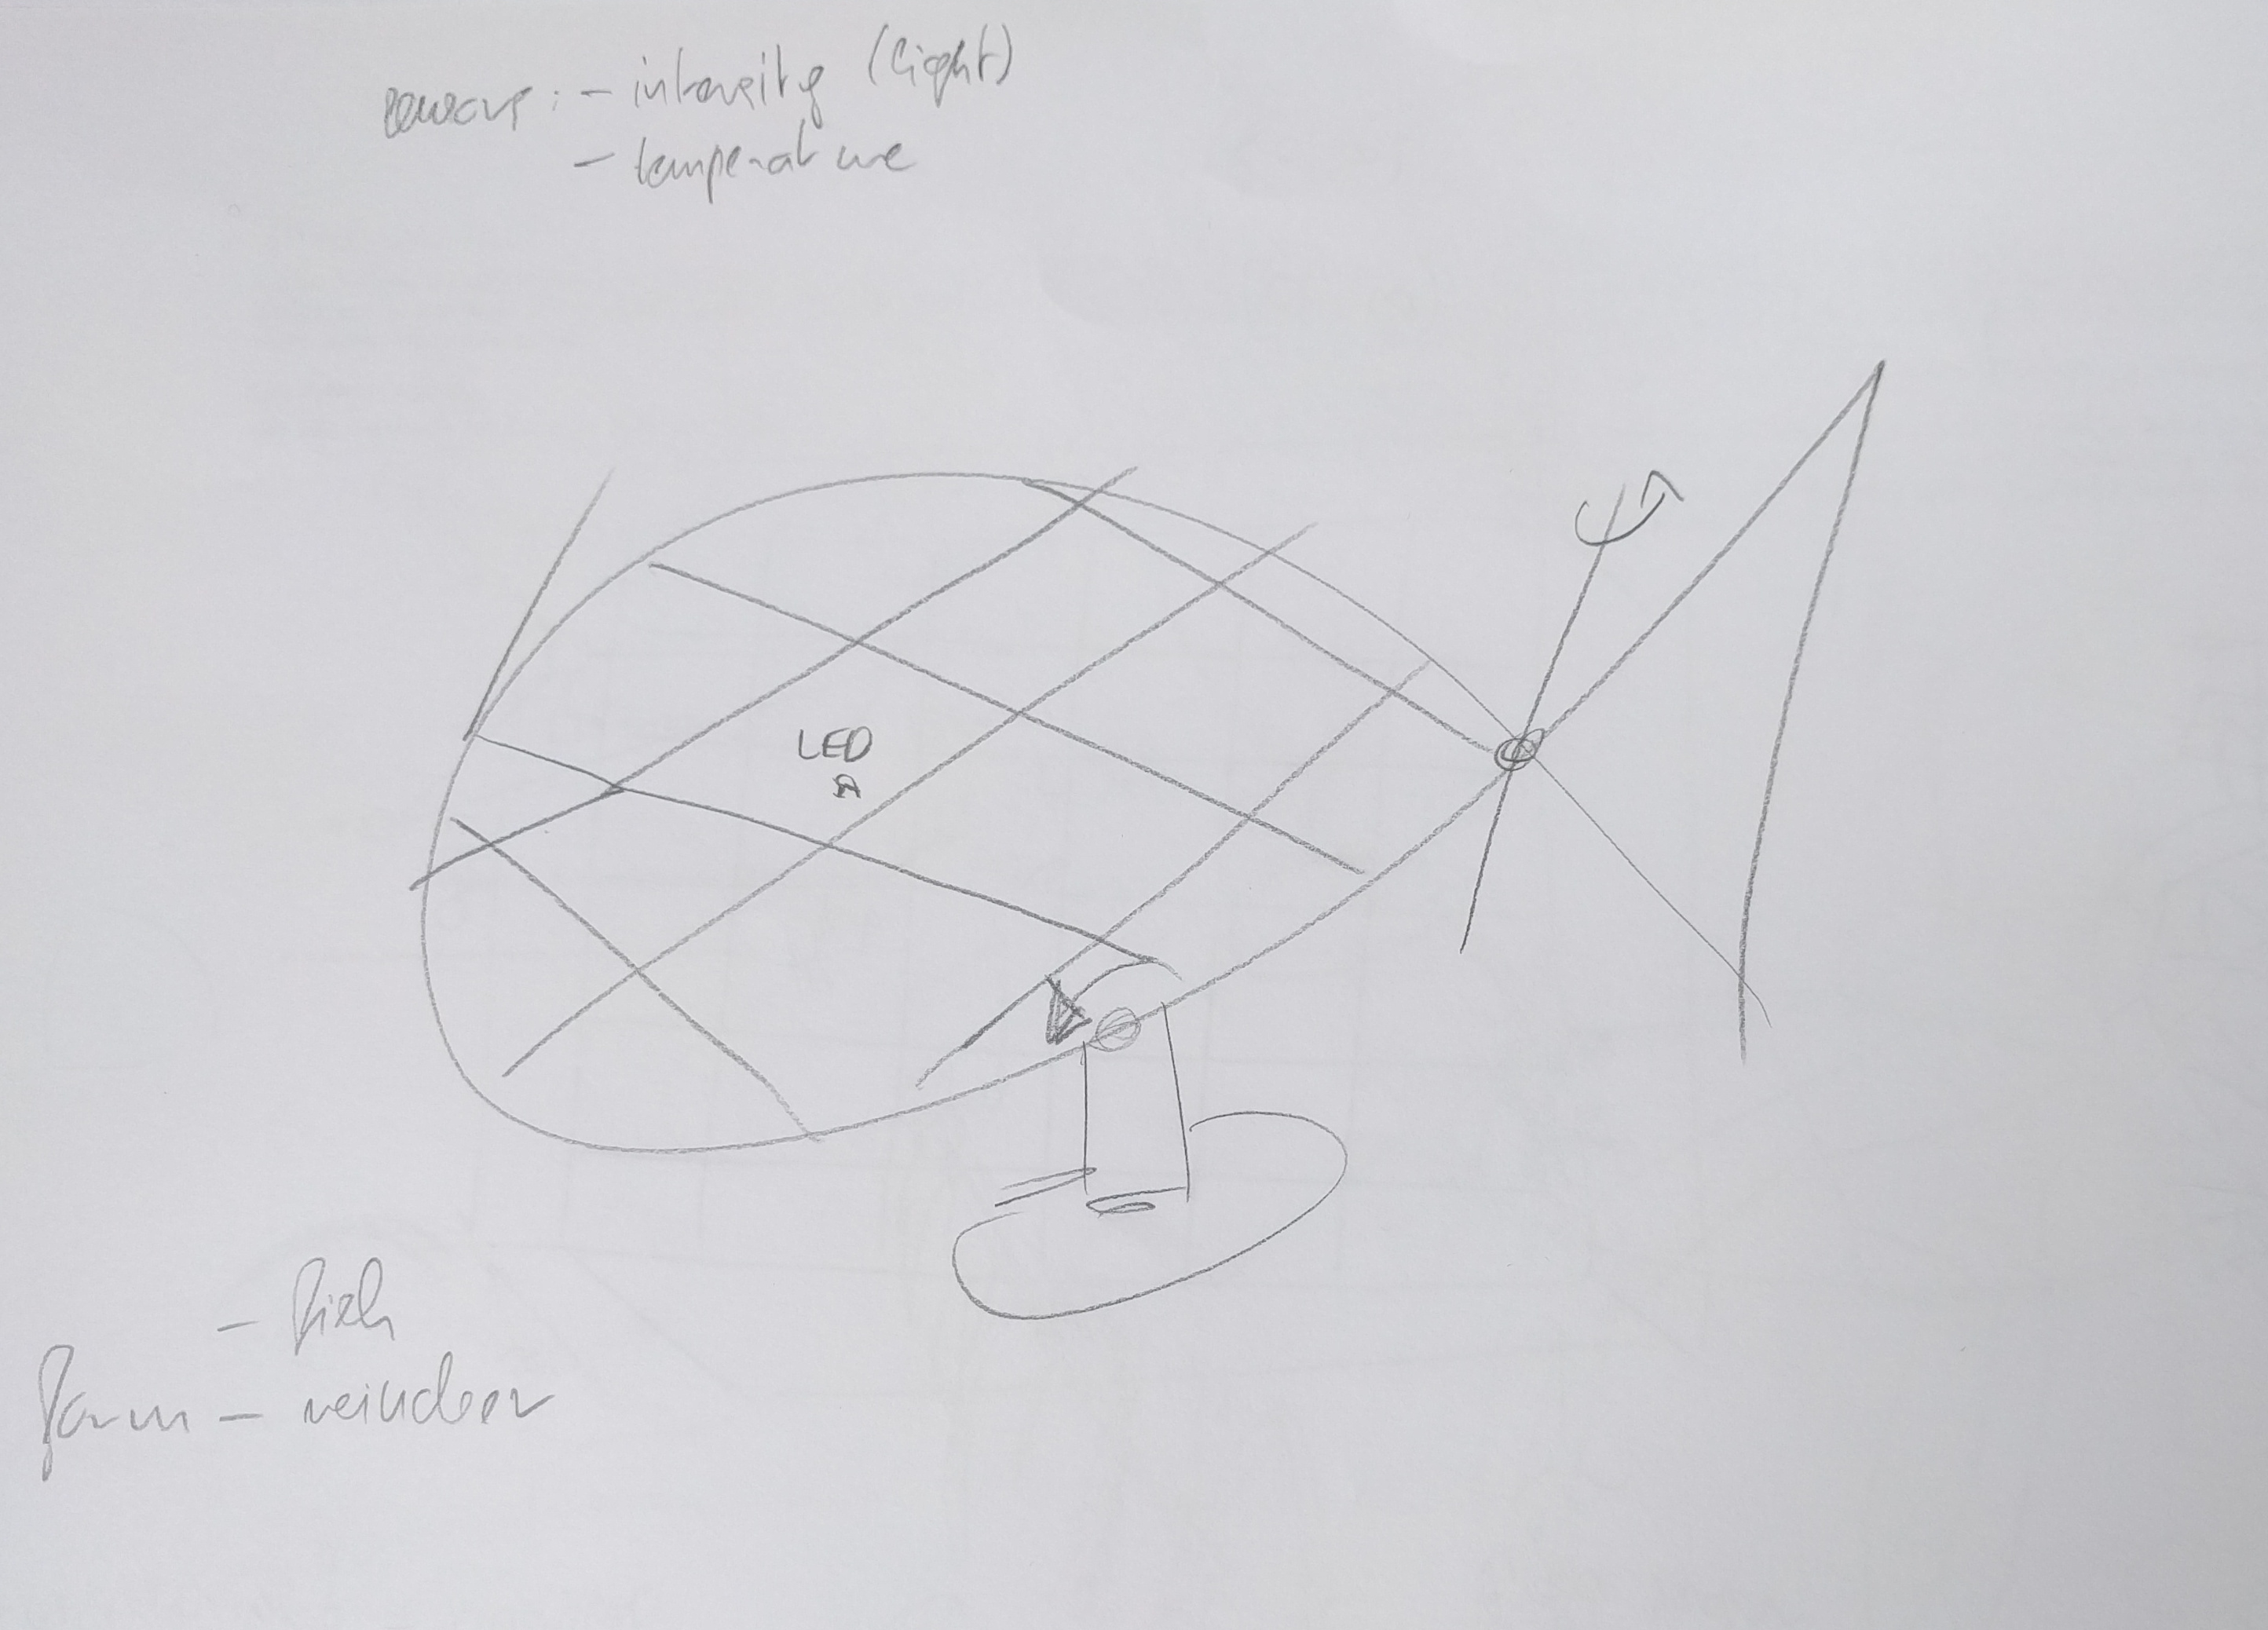 sensors: - intensity (light)
- temperature
LED
- fish
form - reindeer